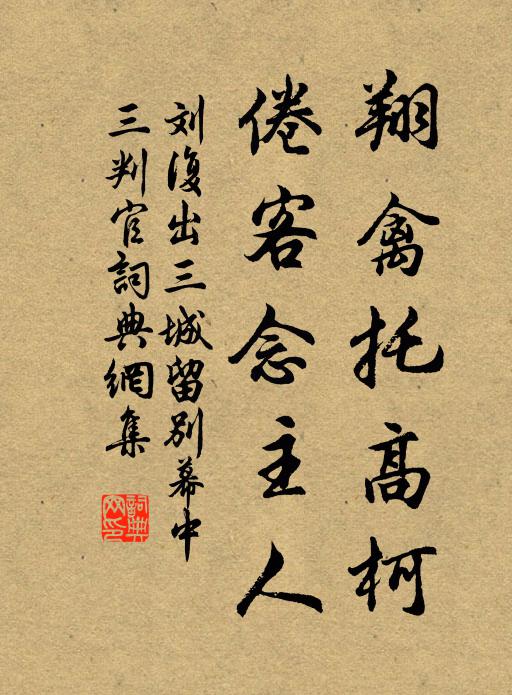 翔禽托高柯
倦客念主人
刘復出三城留别幕中
三判官詞典網集
詞典网印